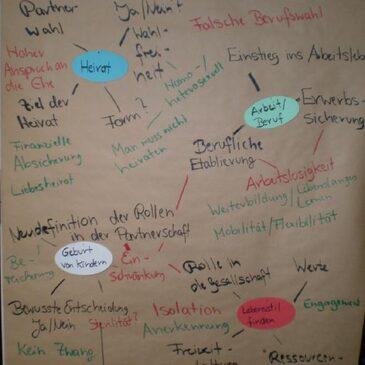 Partner-
wahl
Ja/Nein?
Wahl-
frei-
heit
Falsche Berufswahl
Hoher
Anspruch an
die Ehe
Heirat
Homo-/
heterosexuell
Einstieg ins Arbeitsleb
Ziel der
Heirat
Form?
Arbeit/
Beruf
Erwerbs-
sicherung
Finanzielle
Absicherung
Man muss nicht
heiraten
Berufliche
Etablierung
Liebesheirat
Arbeitslosigkeit
Weiterbildung/Lebenlanges
Lernen
Mobilität/Flexibilität
Neudefinition der Rollen
in der Partnerschaft
Geburt
von Kindern
Be-
reicherung
Ein-
schränkung
Rolle in
die Gesellschaft
Werte
Bewusste Entscheidung
Ja/Nein
Sterilität?
Isolation
Anerkennung
Lebensstil
finden
Engagement
Kein Zwang
Freizeit-
Ressourcen-